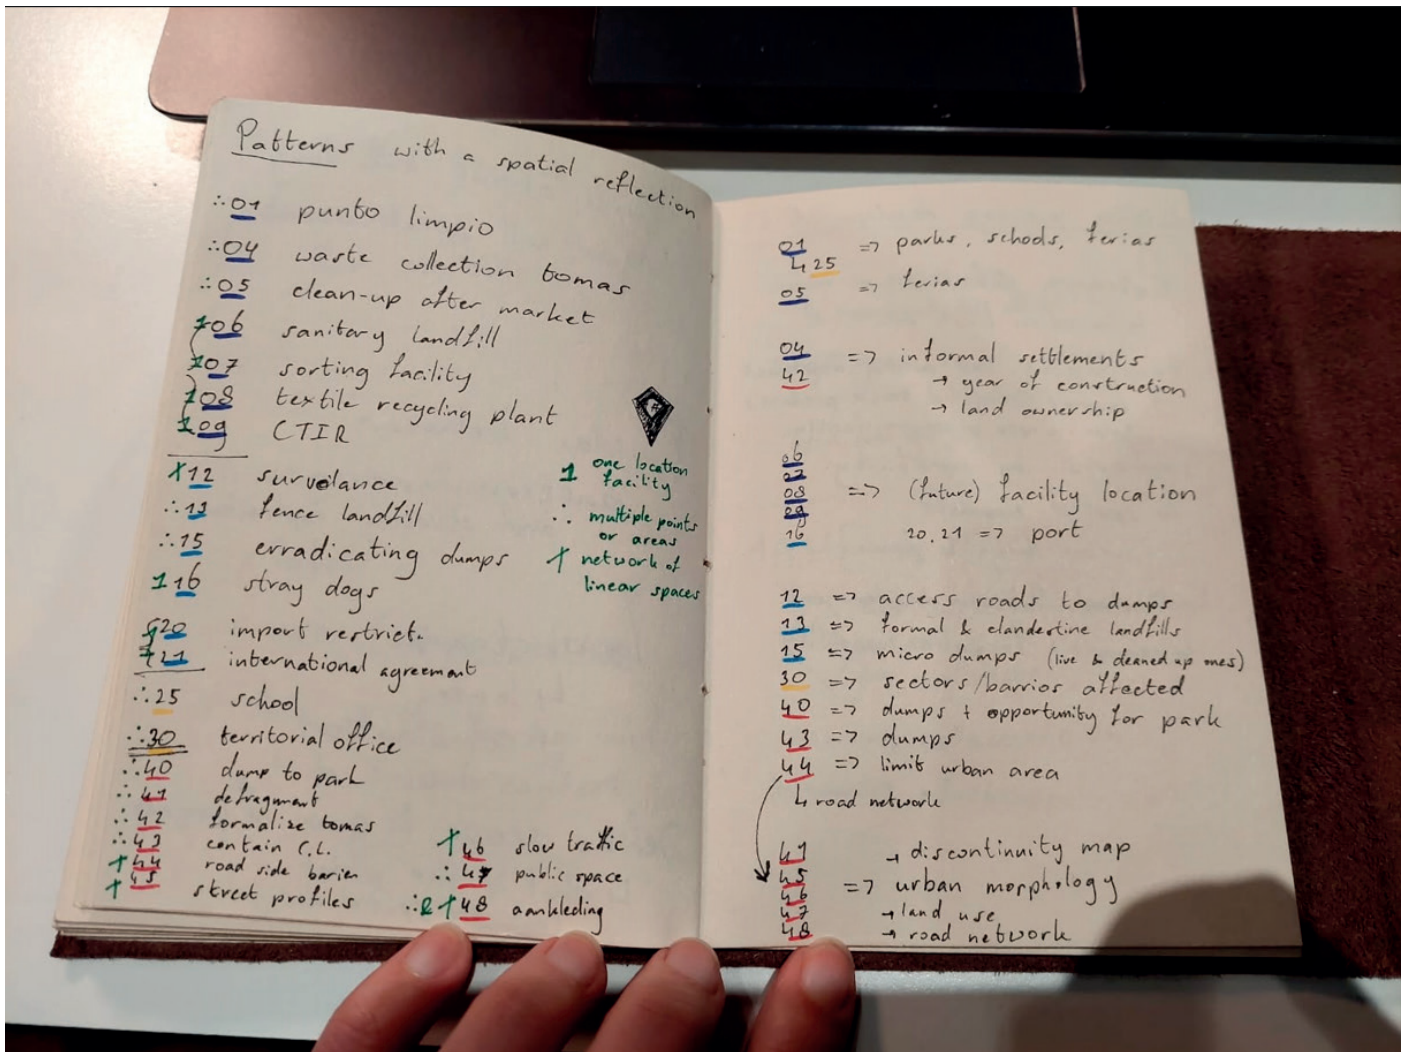 Patterns with a spatial reflection
∴ 01 punto limpio
∴ 04 waste collection tomas
∴ 05 clean-up after market
1 06 sanitary landfill
1 07 sorting facility
1 08 textile recycling plant
1 09 CTIR
+ 12 survolance
∴ 13 fence landfill
∴ 15 erradicating dumps
1 16 stray dogs
20 import restrict.
21 international agreement
∴ 25 school
∴ 30 territorial office
∴ 40 dump to park
∴ 41 defragment
∴ 42 formalize tomas
∴ 43 contain C.L.
+ 44 road side barier
+ 45 street profiles
+ 46 slow traffic
∴ 47 public space
∴ & + 48 aankleding
1 one location
facility
∴ multiple points
or areas
+ network of
linear spaces
01 => parks, schools, ferias
↳ 25
05 => ferias
04 => informal settlements
42 → year of construction
→ land ownership
06
07
08 => (future) facility location
09
16 20, 21 => port
12 => access roads to dumps
13 => formal & clandestine landfills
15 => micro dumps (live & cleaned up ones)
30 => sectors/barrios affected
40 => dumps + opportunity for park
43 => dumps
44 => limit urban area
↳ road network
41 → discontinuity map
45 => urban morphology
46
47 → land use
48 → road network